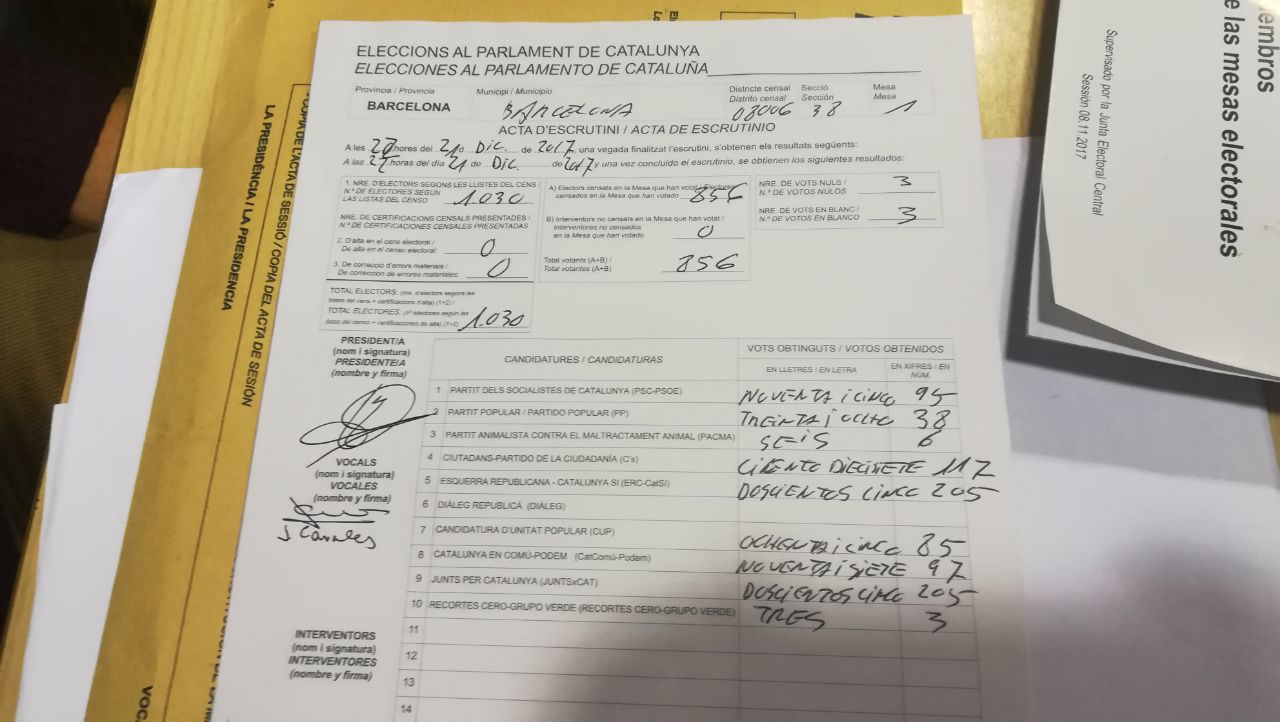 ELECCIONS AL PARLAMENT DE CATALUNYA
ELECCIONES AL PARLAMENTO DE CATALUÑA
Província / Provincia
BARCELONA
Municipi / Municipio
BARCELONA
Districte censal
Distrito censal
08006
Secció
Sección
38
Mesa
Mesa
1
ACTA D'ESCRUTINI / ACTA DE ESCRUTINIO
A les 22 hores del 21 d Dic. de 2017, una vegada finalitzat l'escrutini, s'obtenen els resultats següents:
A las 22 horas del día 21 de Dic. de 2017 y una vez concluido el escrutinio, se obtienen los siguientes resultados:
1. NRE. D'ELECTORS SEGONS LES LLISTES DEL CENS /
N.º DE ELECTORES SEGÚN
LAS LISTAS DEL CENSO 1.030
NRE. DE CERTIFICACIONS CENSALS PRESENTADES /
N.º DE CERTIFICACIONES CENSALES PRESENTADAS
2. D'alta en el cens electoral /
De alta en el censo electoral: 0
3. De correcció d'errors materials /
De corrección de errores materiales: 0
TOTAL ELECTORS: (nre. d'electors segons les
llistes del cens + certificacions d'alta) (1+2) /
TOTAL ELECTORES: (nº electores según las
listas del censo + certificaciones de alta) (1+2) 1.030
A) Electors censats en la Mesa que han votat / Electores
censados en la Mesa que han votado 856
B) Interventors no censats en la Mesa que han votat /
Interventores no censados
en la Mesa que han votado 0
Total votants (A+B) /
Total votantes (A+B) 856
NRE. DE VOTS NULS /
N.º DE VOTOS NULOS 3
NRE. DE VOTS EN BLANC /
N.º DE VOTOS EN BLANCO 3
PRESIDENT/A
(nom i signatura)
PRESIDENTE/A
(nombre y firma)
VOCALS
(nom i signatura)
VOCALES
(nombre y firma)
J Canales
INTERVENTORS
(nom i signatura)
INTERVENTORES
(nombre y firma)
CANDIDATURES / CANDIDATURAS
VOTS OBTINGUTS / VOTOS OBTENIDOS
EN LLETRES / EN LETRA
EN XIFRES / EN
NÚM.
1 PARTIT DELS SOCIALISTES DE CATALUNYA (PSC-PSOE) NOVENTA i CINCO 95
2 PARTIT POPULAR / PARTIDO POPULAR (PP) TREINTA i OCHO 38
3 PARTIT ANIMALISTA CONTRA EL MALTRACTAMENT ANIMAL (PACMA) SEIS 6
4 CIUTADANS-PARTIDO DE LA CIUDADANÍA (C's) CIENTO DIECISIETE 117
5 ESQUERRA REPUBLICANA - CATALUNYA SI (ERC-CatSí) DOSCIENTOS CINCO 205
6 DIÀLEG REPUBLICÀ (DIÀLEG)
7 CANDIDATURA D'UNITAT POPULAR (CUP) OCHENTA i CINCO 85
8 CATALUNYA EN COMÚ-PODEM (CatComú-Podem) NOVENTA i SIETE 97
9 JUNTS PER CATALUNYA (JUNTSxCAT) DOSCIENTOS CINCO 205
10 RECORTES CERO-GRUPO VERDE (RECORTES CERO-GRUPO VERDE) TRES 3
11
12
13
14
COPIA DE L'ACTA DE SESSIÓ / COPIA DEL ACTA DE SESIÓN
LA PRESIDÈNCIA / LA PRESIDENCIA
VOC
embros
e las mesas electorales
Supervisado por la Junta Electoral Central
Sesión 08.11.2017